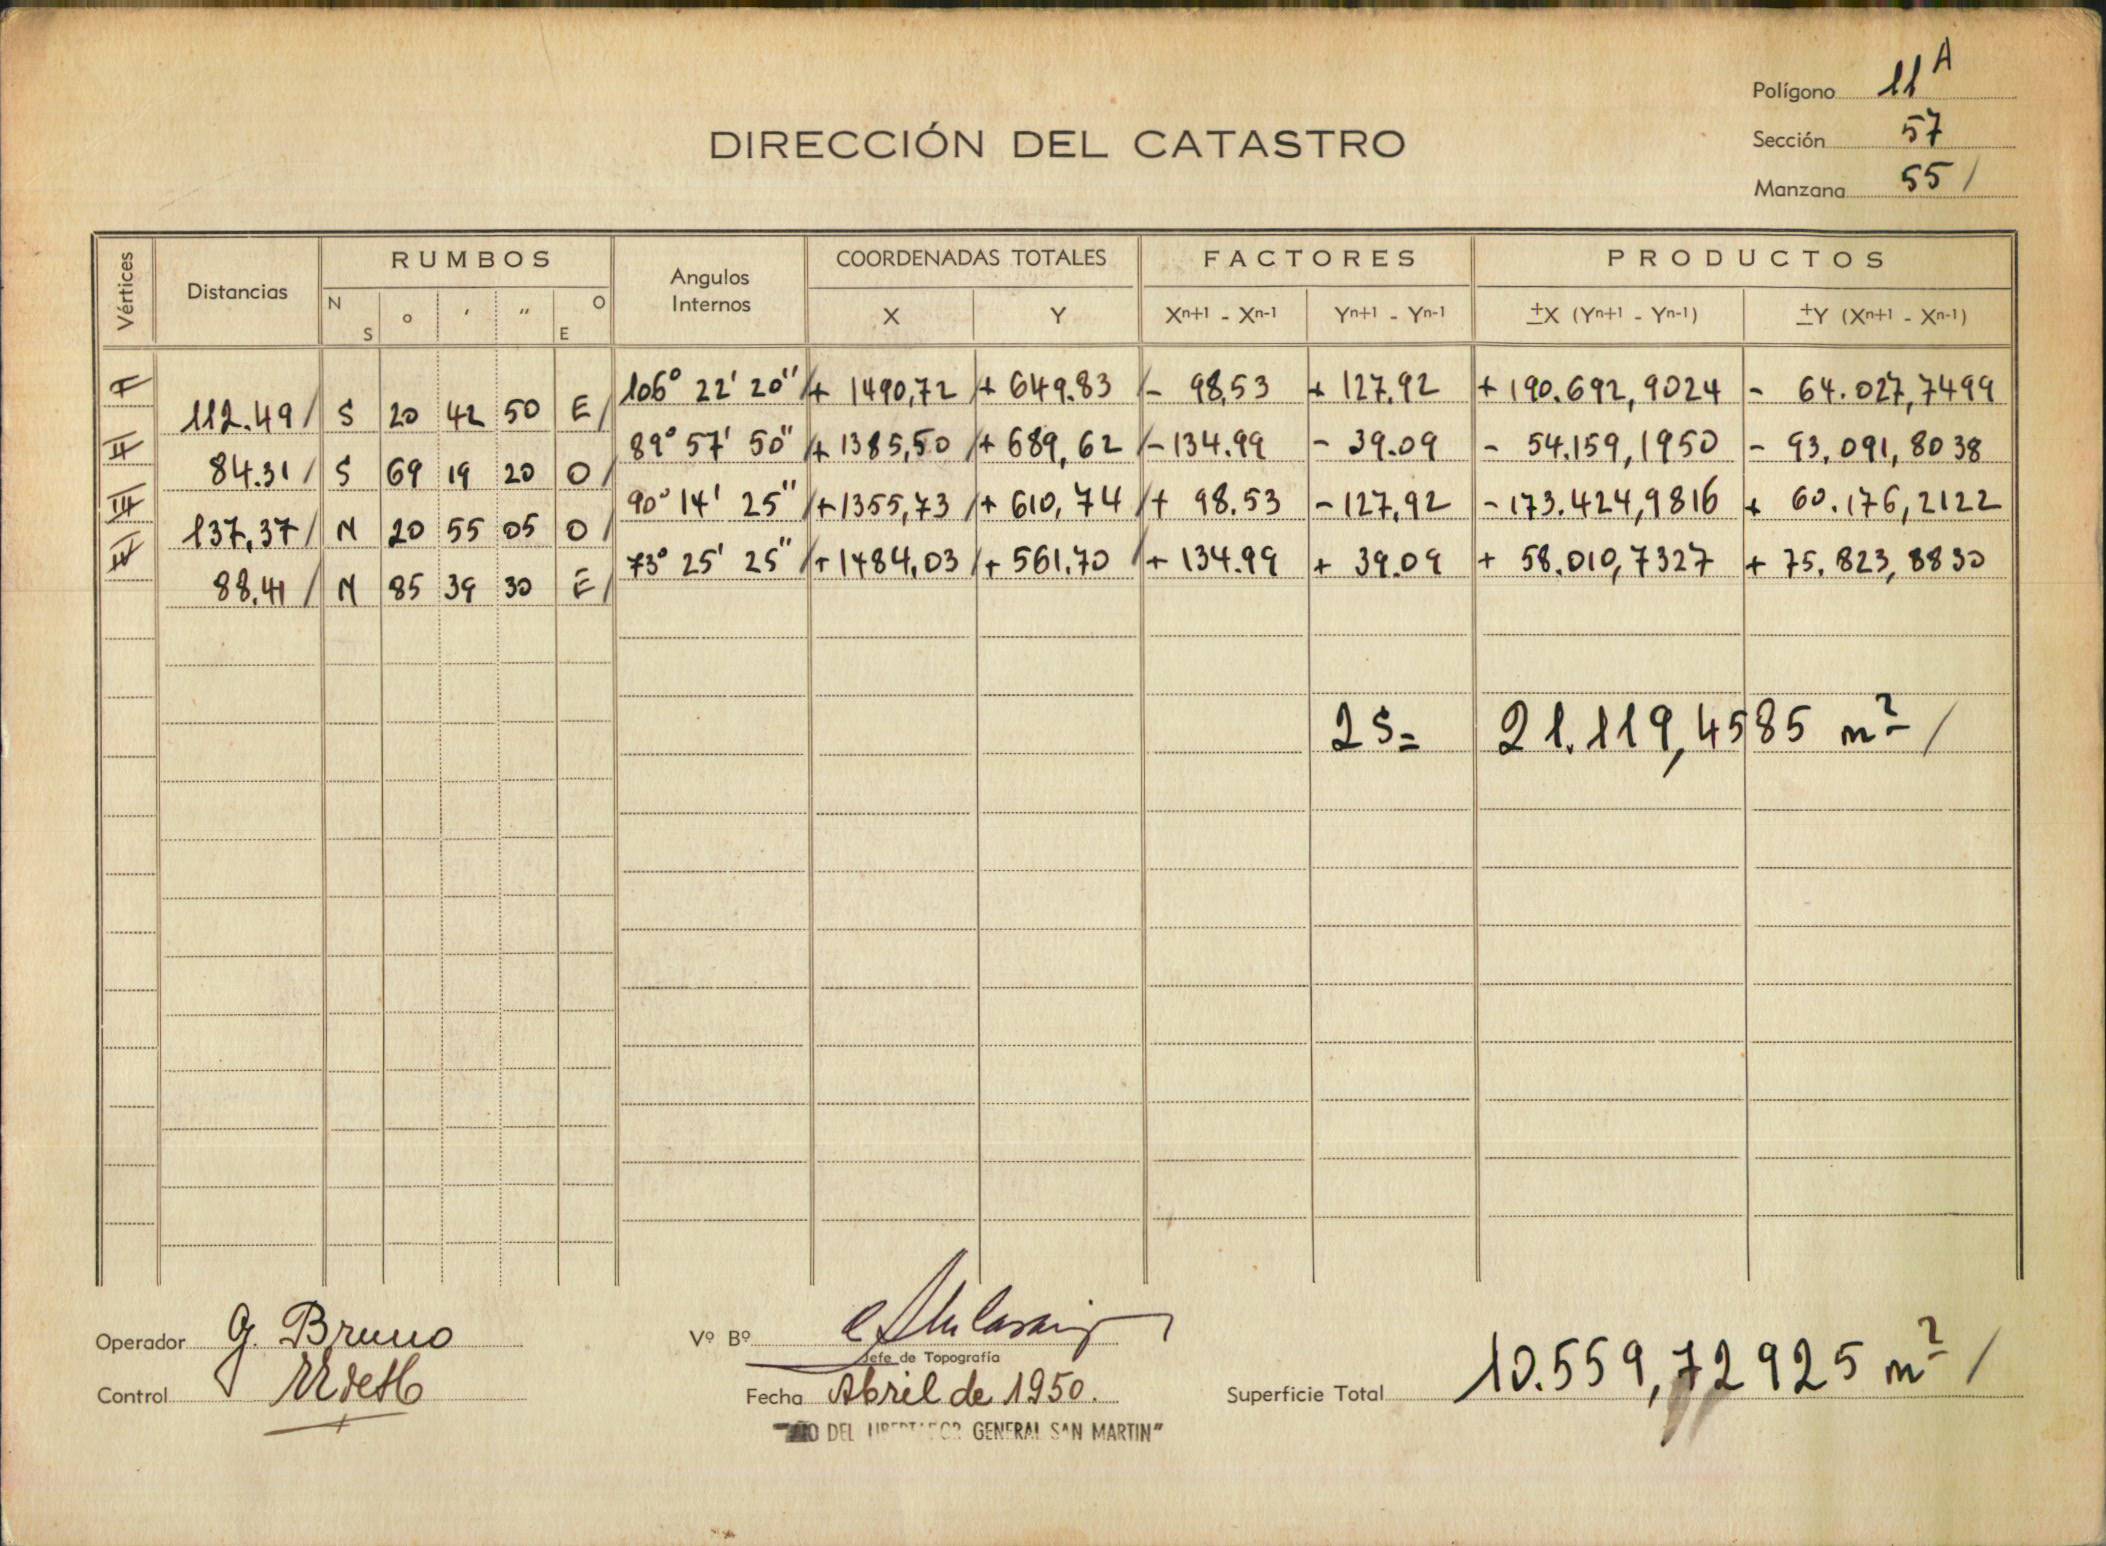 Polígono 11 A
Sección 57
Manzana 55 /
DIRECCIÓN DEL CATASTRO
Vértices Distancias RUMBOS Angulos Internos COORDENADAS TOTALES FACTORES PRODUCTOS
N S ° ' " O E X Y Xn+1 - Xn-1 Yn+1 - Yn-1 ±X (Yn+1 - Yn-1) ±Y (Xn+1 - Xn-1)
I 106° 22' 20" + 1490,72 + 649.83 - 98,53 + 127,92 + 190.692,9024 - 64.027,7499
112.49 / S 20 42 50 E /
II 89° 57' 50" + 1385,50 + 689,62 - 134.99 - 39.09 - 54.159,1950 - 93,091,8038
84.31 / S 69 19 20 O /
III 90° 14' 25" + 1355,73 + 610,74 + 98.53 - 127,92 - 173.424,9816 + 60.176,2122
137,37 / N 20 55 05 O /
IV 73° 25' 25" + 1484,03 + 561.70 + 134.99 + 39.09 + 58.010,7327 + 75.823,8830
88.41 / N 85 39 30 E /
2 S = 21.119,4585 m² /
Operador G. Bruno
Control
Vº Bº
Jefe de Topografía
Fecha Abril de 1950.
DEL LIBERTADOR GENERAL SAN MARTIN"
Superficie Total 10.559,72925 m² /